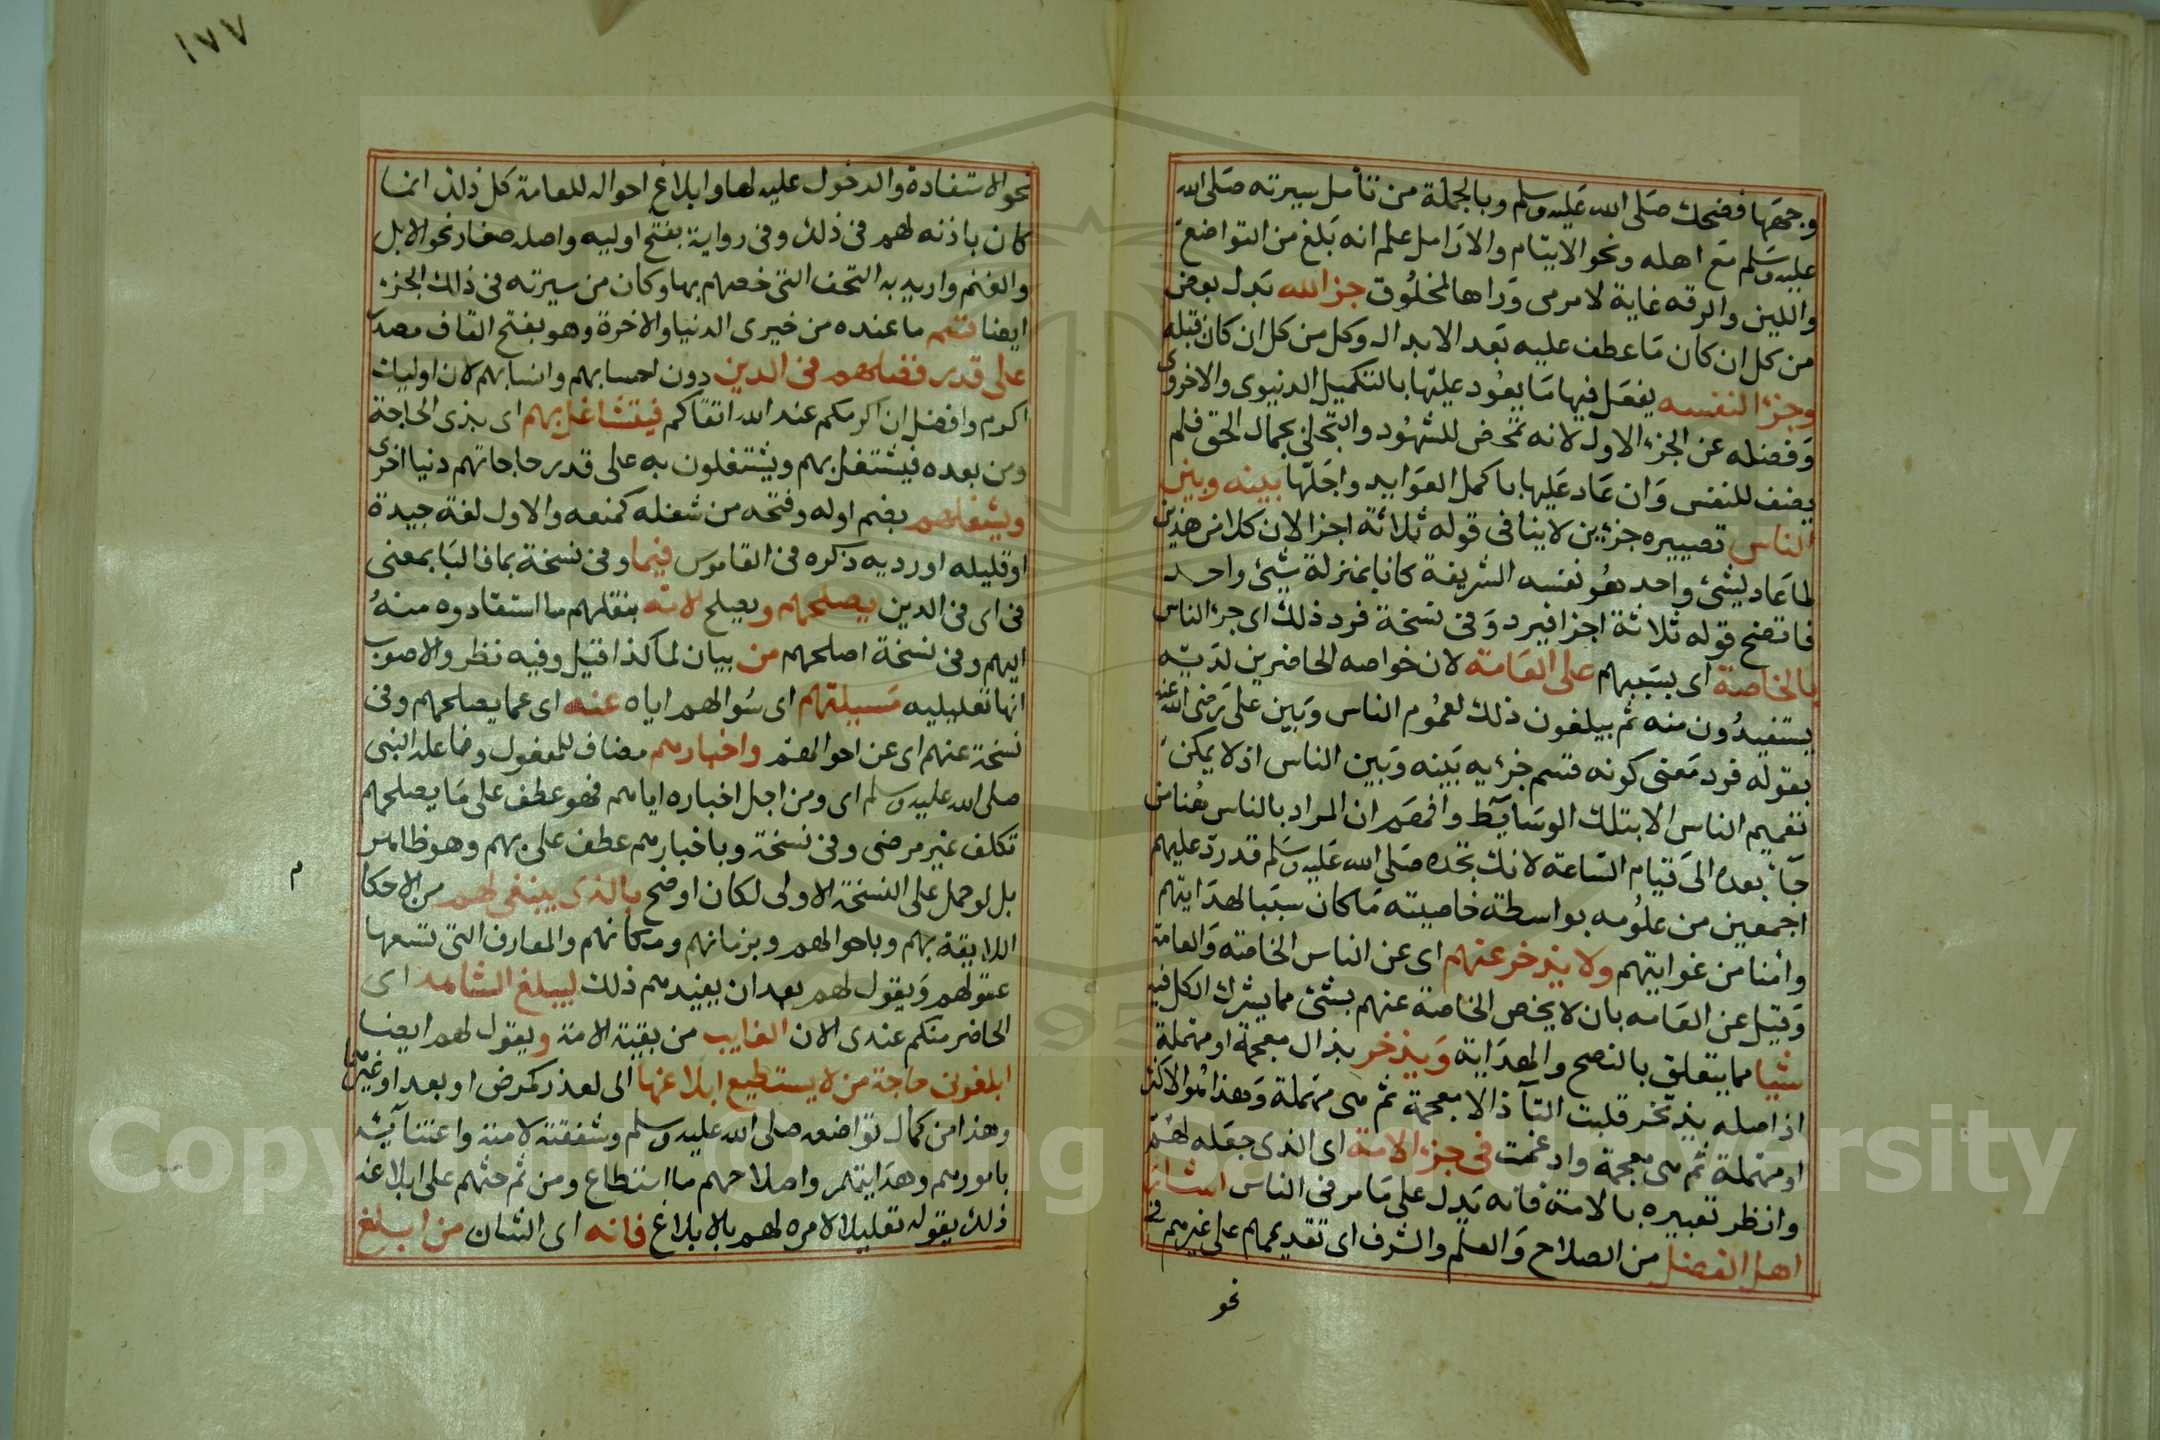 وجهها فضحك صلى الله عليه وسلم وبالجملة من تأمل سيرته صلى الله
عليه وسلم مع اهله ونحو الايتام والارامل علم انه بلغ من التواضع
واللين والرقه غاية لا مرمى وراها لمخلوق جزا لله بدل بعض
من كل ان كان ما عطف عليه بعد الابدال وكل من كل ان كان قبله
وجزء النفسه يفعل فيها ما يعود عليها بالتكميل الدنيوى والاخروى
وفضله عن الجزء الاول لانه تمحض للشهود والتجلى بجمال الحق فلم
يضف للنفس وان عاد عليها باكمل العوايد واجلها بينه وبين
الناس تصييره جزءين لا ينافى قوله ثلاثة اجزا لان كلا من هذين
لما عاد لشئ واحد هو نفسه الشريفة كانا بمنزلة شئ واحد
فاتضح قوله ثلاثة اجزا فيرد وفى نسخة فرد ذلك اى جزء الناس
بالخاصة اى بسببهم على العامة لان خواصه الحاضرين لديه
يستفيدون منه ثم يبلغون ذلك لعموم الناس وبين على رضى الله عنه
بقوله فرد معنى كونه قسم جزءيه بينه وبين الناس اذ لا يمكن
تعميم الناس الا بتلك الوسايط وافهم ان المراد بالناس هنا من
جآء بعده الى قيام الساعة لانك تجده صلى الله عليه وسلم قد رد عليهم
اجمعين من علومه بواسطة خاصيته ما كان سببا لهدايتهم
وامنا من غوايتهم ولا يذخر عنهم اى عن الناس الخاصه والعامة
وقيل عن العامه بان لا يخص الخاصة عنهم بشئ مما يشرك الكل فيه
شيا مما يتعلق بالنصح والهداية ويذخر بذال معجمة او مهملة
اذ اصله يذتخر قلبت التآ ذالا معجمة ثم هى مهملة وهذا هو الاكثر
او مهملة ثم هى معجمة وادغمت فى جزء الامة اى الذى جعله لهم
وانظر تعبيره بالامة فانه يدل على ما مر فى الناس
اهل الفضل من الصلاح والعلم والشرف اى تقديمهم على غيرهم فى
نحو
١٧٧
نحو الاستفادة والدخول عليه لها وابلاغ احواله للعامة كل ذلك انما
كان باذنه لهم فى ذلك وفى رواية بفتح اوليه واصله صغار نحو الابل
والغنم واريد به التحف التى خصهم بها وكان من سيرته فى ذلك الجزء
ايضا قسم ما عنده من خيرى الدنيا والاخرة وهو بفتح القاف مصدر
على قدر فضلهم فى الدين دون احسابهم وانسابهم لان اوليك
اكرم وافضل ان اكرمكم عند الله اتقاكم فيتشاغل بهم اى بذى الحاجة
ومن بعده فيشتغل بهم ويشتغلون به على قدر حاجاتهم دنيا اخرى
ويشغلهم بضم اوله وفتحه من شغله كمنعه والاول لغة جيدة
او قليله او رديه ذكره فى القاموس فيما وفى نسخة بما فالبا بمعنى
فى اى فى الدين يصلحهم ويصلح الامة بنقلهم ما استفادوه منه
اليهم وفى نسخة اصلحهم من بيان لما كذا قيل وفيه نظر والاصوب
انها تعليليه مسيلتهم اى سوالهم اياه عنه اى عما يصلحهم وفى
نسخة عنهم اى عن احوالهم واخبارهم مضاف للمفعول وفاعله النبى
صلى الله عليه وسلم اى ومن اجل اخباره اياهم فهو عطف على ما يصلحهم
تكلف غير مرضى وفى نسخة وباخبارهم عطف على بهم وهو ظاهر
بل لو حمل على النسخة الاولى لكان اوضح بالذى ينبغى لهم من الاحكا
م
اللايقة بهم وباحوالهم وبزمانهم ومكانهم والمعارف التى تسعها
عقولهم ويقول لهم بعد ان يفيدهم ذلك ليبلغ الشاهد اى
الحاضر منكم عندى الان الغايب من بقية الامة ويقول لهم ايضا
ابلغونى حاجة من لا يستطيع ابلاغها الى لعذر كمرض او بعد او غيرهما
وهذا من كمال تواضعه صلى الله عليه وسلم وشفقته لامته واعتنآئيه
بامورهم وهدايتهم واصلاحهم ما استطاع ومن ثم حثهم على ابلاغه
ذلك بقوله تعليلا لامره لهم بالابلاغ فانه اى الشان من ابلغ
Copyright © King Saud University
1957